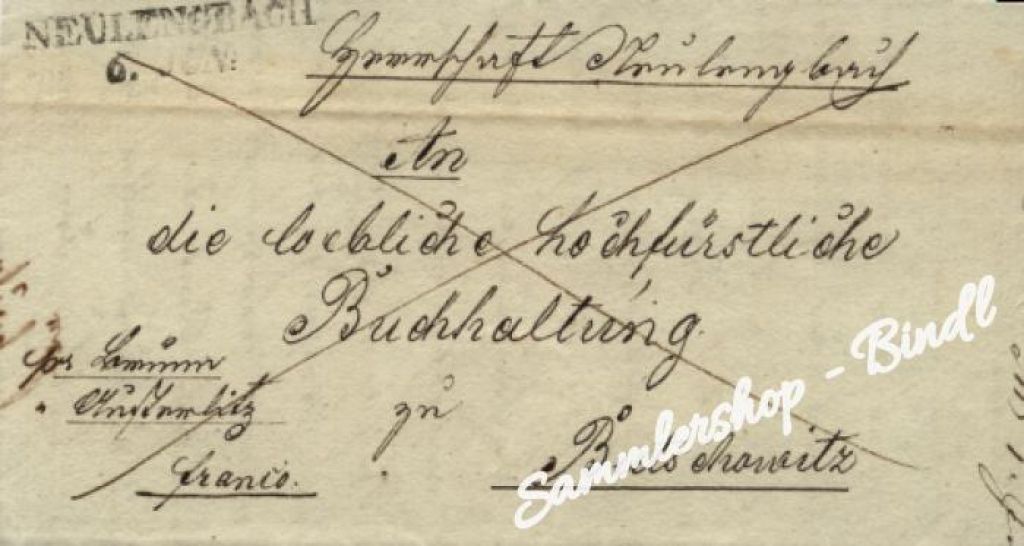 NEULENGBACH
6. JUN:
Herrschaft Neulengbach
An
die loebliche hochfürstliche
Buchhaltung
zu
Butschowitz
per Brünn
Austerlitz
franco.
Sammlershop - Bindl